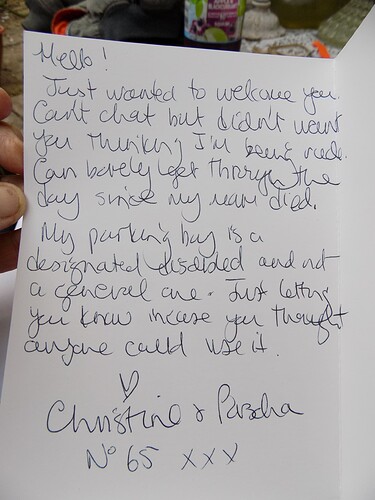 Hello!
Just wanted to welcome you.
Can't chat but didn't want
you thinking I'm being rude.
Can barely get through the
day since my mam died.
My parking bay is a
designated disabled and not
a general one. Just letting
you know incase you thought
anyone could use it.
♡
Christine &
No 65 xxx